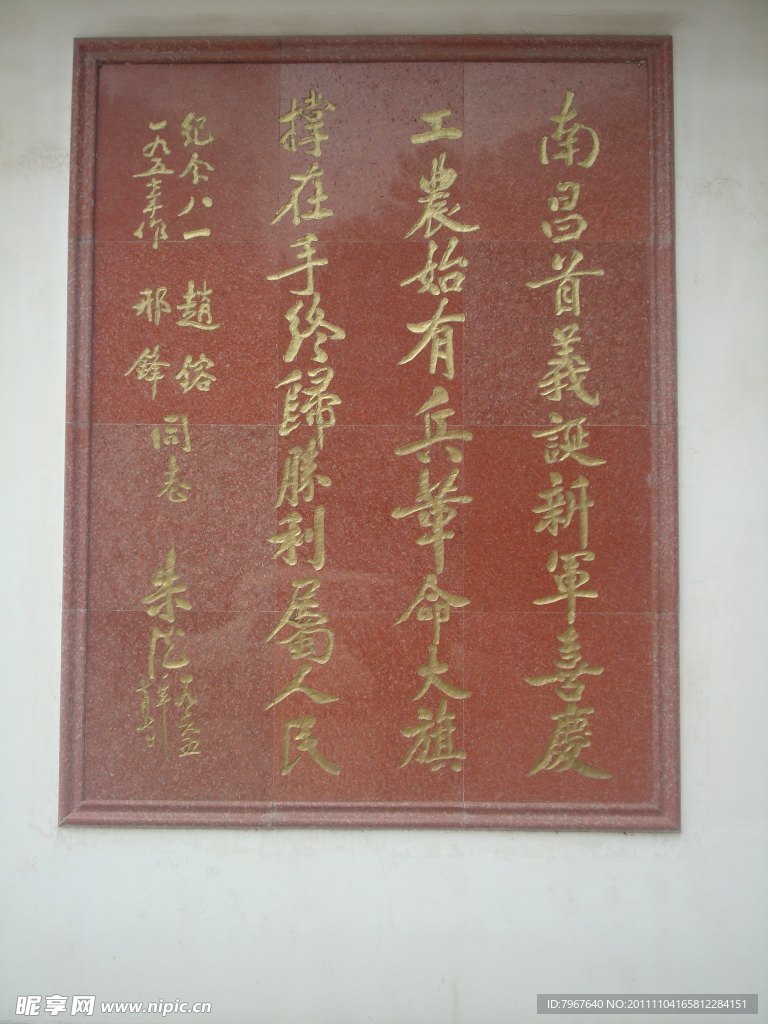 南昌首義誕新軍喜慶
工農始有兵革命大旗
撑在手終歸勝利屬人民
紀念八一
一九五七年作
趙鎔
邢鋒
同志
朱德
一九六五
昵享网 www.nipic.cn
ID:7967640 NO:20111104165812284151